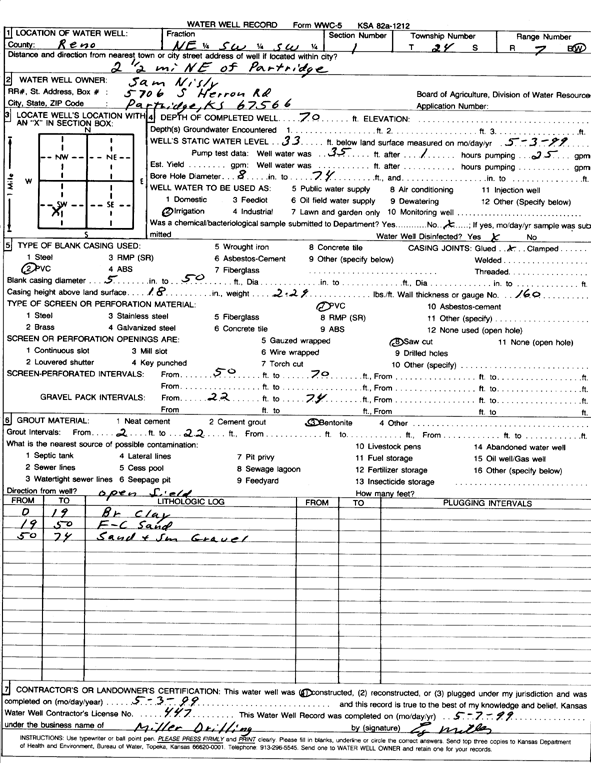 WATER WELL RECORD Form WWC-5 KSA 82a-1212
1 LOCATION OF WATER WELL: Fraction Section Number Township Number Range Number
County: Reno NE ¼ SW ¼ SW ¼ 1 T 24 S R 7 E/W
Distance and direction from nearest town or city street address of well if located within city?
2 1/2 mi NE of Partridge
2 WATER WELL OWNER: Sam Nisly
RR#, St. Address, Box # : 5706 S Herron Rd Board of Agriculture, Division of Water Resource
City, State, ZIP Code : Partridge, KS 67566 Application Number:
3 LOCATE WELL'S LOCATION WITH AN "X" IN SECTION BOX:
N
NW NE
W E
SW SE
S
1 Mile
X
4 DEPTH OF COMPLETED WELL 70 ft. ELEVATION:
Depth(s) Groundwater Encountered 1. ft. 2. ft. 3. ft.
WELL'S STATIC WATER LEVEL 33 ft. below land surface measured on mo/day/yr 5-3-99
Pump test data: Well water was 35 ft. after 1 hours pumping 25 gpm
Est. Yield gpm: Well water was ft. after hours pumping gpm
Bore Hole Diameter 8 in. to 74 ft., and in. to ft.
WELL WATER TO BE USED AS: 5 Public water supply 8 Air conditioning 11 Injection well
1 Domestic 3 Feedlot 6 Oil field water supply 9 Dewatering 12 Other (Specify below)
2 Irrigation 4 Industrial 7 Lawn and garden only 10 Monitoring well
Was a chemical/bacteriological sample submitted to Department? Yes No X ; If yes, mo/day/yr sample was sub
mitted Water Well Disinfected? Yes X No
5 TYPE OF BLANK CASING USED: 5 Wrought iron 8 Concrete tile CASING JOINTS: Glued X Clamped
1 Steel 3 RMP (SR) 6 Asbestos-Cement 9 Other (specify below) Welded
2 PVC 4 ABS 7 Fiberglass Threaded
Blank casing diameter 5 in. to 50 ft., Dia in. to ft., Dia in. to ft.
Casing height above land surface 18 in., weight 2.29 lbs./ft. Wall thickness or gauge No. 160
TYPE OF SCREEN OR PERFORATION MATERIAL: 7 PVC 10 Asbestos-cement
1 Steel 3 Stainless steel 5 Fiberglass 8 RMP (SR) 11 Other (specify)
2 Brass 4 Galvanized steel 6 Concrete tile 9 ABS 12 None used (open hole)
SCREEN OR PERFORATION OPENINGS ARE: 5 Gauzed wrapped 8 Saw cut 11 None (open hole)
1 Continuous slot 3 Mill slot 6 Wire wrapped 9 Drilled holes
2 Louvered shutter 4 Key punched 7 Torch cut 10 Other (specify)
SCREEN-PERFORATED INTERVALS: From 50 ft. to 70 ft., From ft. to ft.
From ft. to ft., From ft. to ft.
GRAVEL PACK INTERVALS: From 22 ft. to 74 ft., From ft. to ft.
From ft. to ft., From ft. to ft.
6 GROUT MATERIAL: 1 Neat cement 2 Cement grout 3 Bentonite 4 Other
Grout Intervals: From 2 ft. to 22 ft., From ft. to ft., From ft. to ft.
What is the nearest source of possible contamination: 10 Livestock pens 14 Abandoned water well
1 Septic tank 4 Lateral lines 7 Pit privy 11 Fuel storage 15 Oil well/Gas well
2 Sewer lines 5 Cess pool 8 Sewage lagoon 12 Fertilizer storage 16 Other (specify below)
3 Watertight sewer lines 6 Seepage pit 9 Feedyard 13 Insecticide storage
Direction from well? open field How many feet?
FROM TO LITHOLOGIC LOG FROM TO PLUGGING INTERVALS
0 19 Br Clay
19 50 F-C Sand
50 74 Sand + Sm Gravel
7 CONTRACTOR'S OR LANDOWNER'S CERTIFICATION: This water well was (1) constructed, (2) reconstructed, or (3) plugged under my jurisdiction and was
completed on (mo/day/year) 5-3-99 and this record is true to the best of my knowledge and belief. Kansas
Water Well Contractor's License No. 447 This Water Well Record was completed on (mo/day/yr) 5-7-99
under the business name of Miller Drilling by (signature) Miller
INSTRUCTIONS: Use typewriter or ball point pen. PLEASE PRESS FIRMLY and PRINT clearly. Please fill in blanks, underline or circle the correct answers. Send top three copies to Kansas Department
of Health and Environment, Bureau of Water, Topeka, Kansas 66620-0001. Telephone: 913-296-5545. Send one to WATER WELL OWNER and retain one for your records.